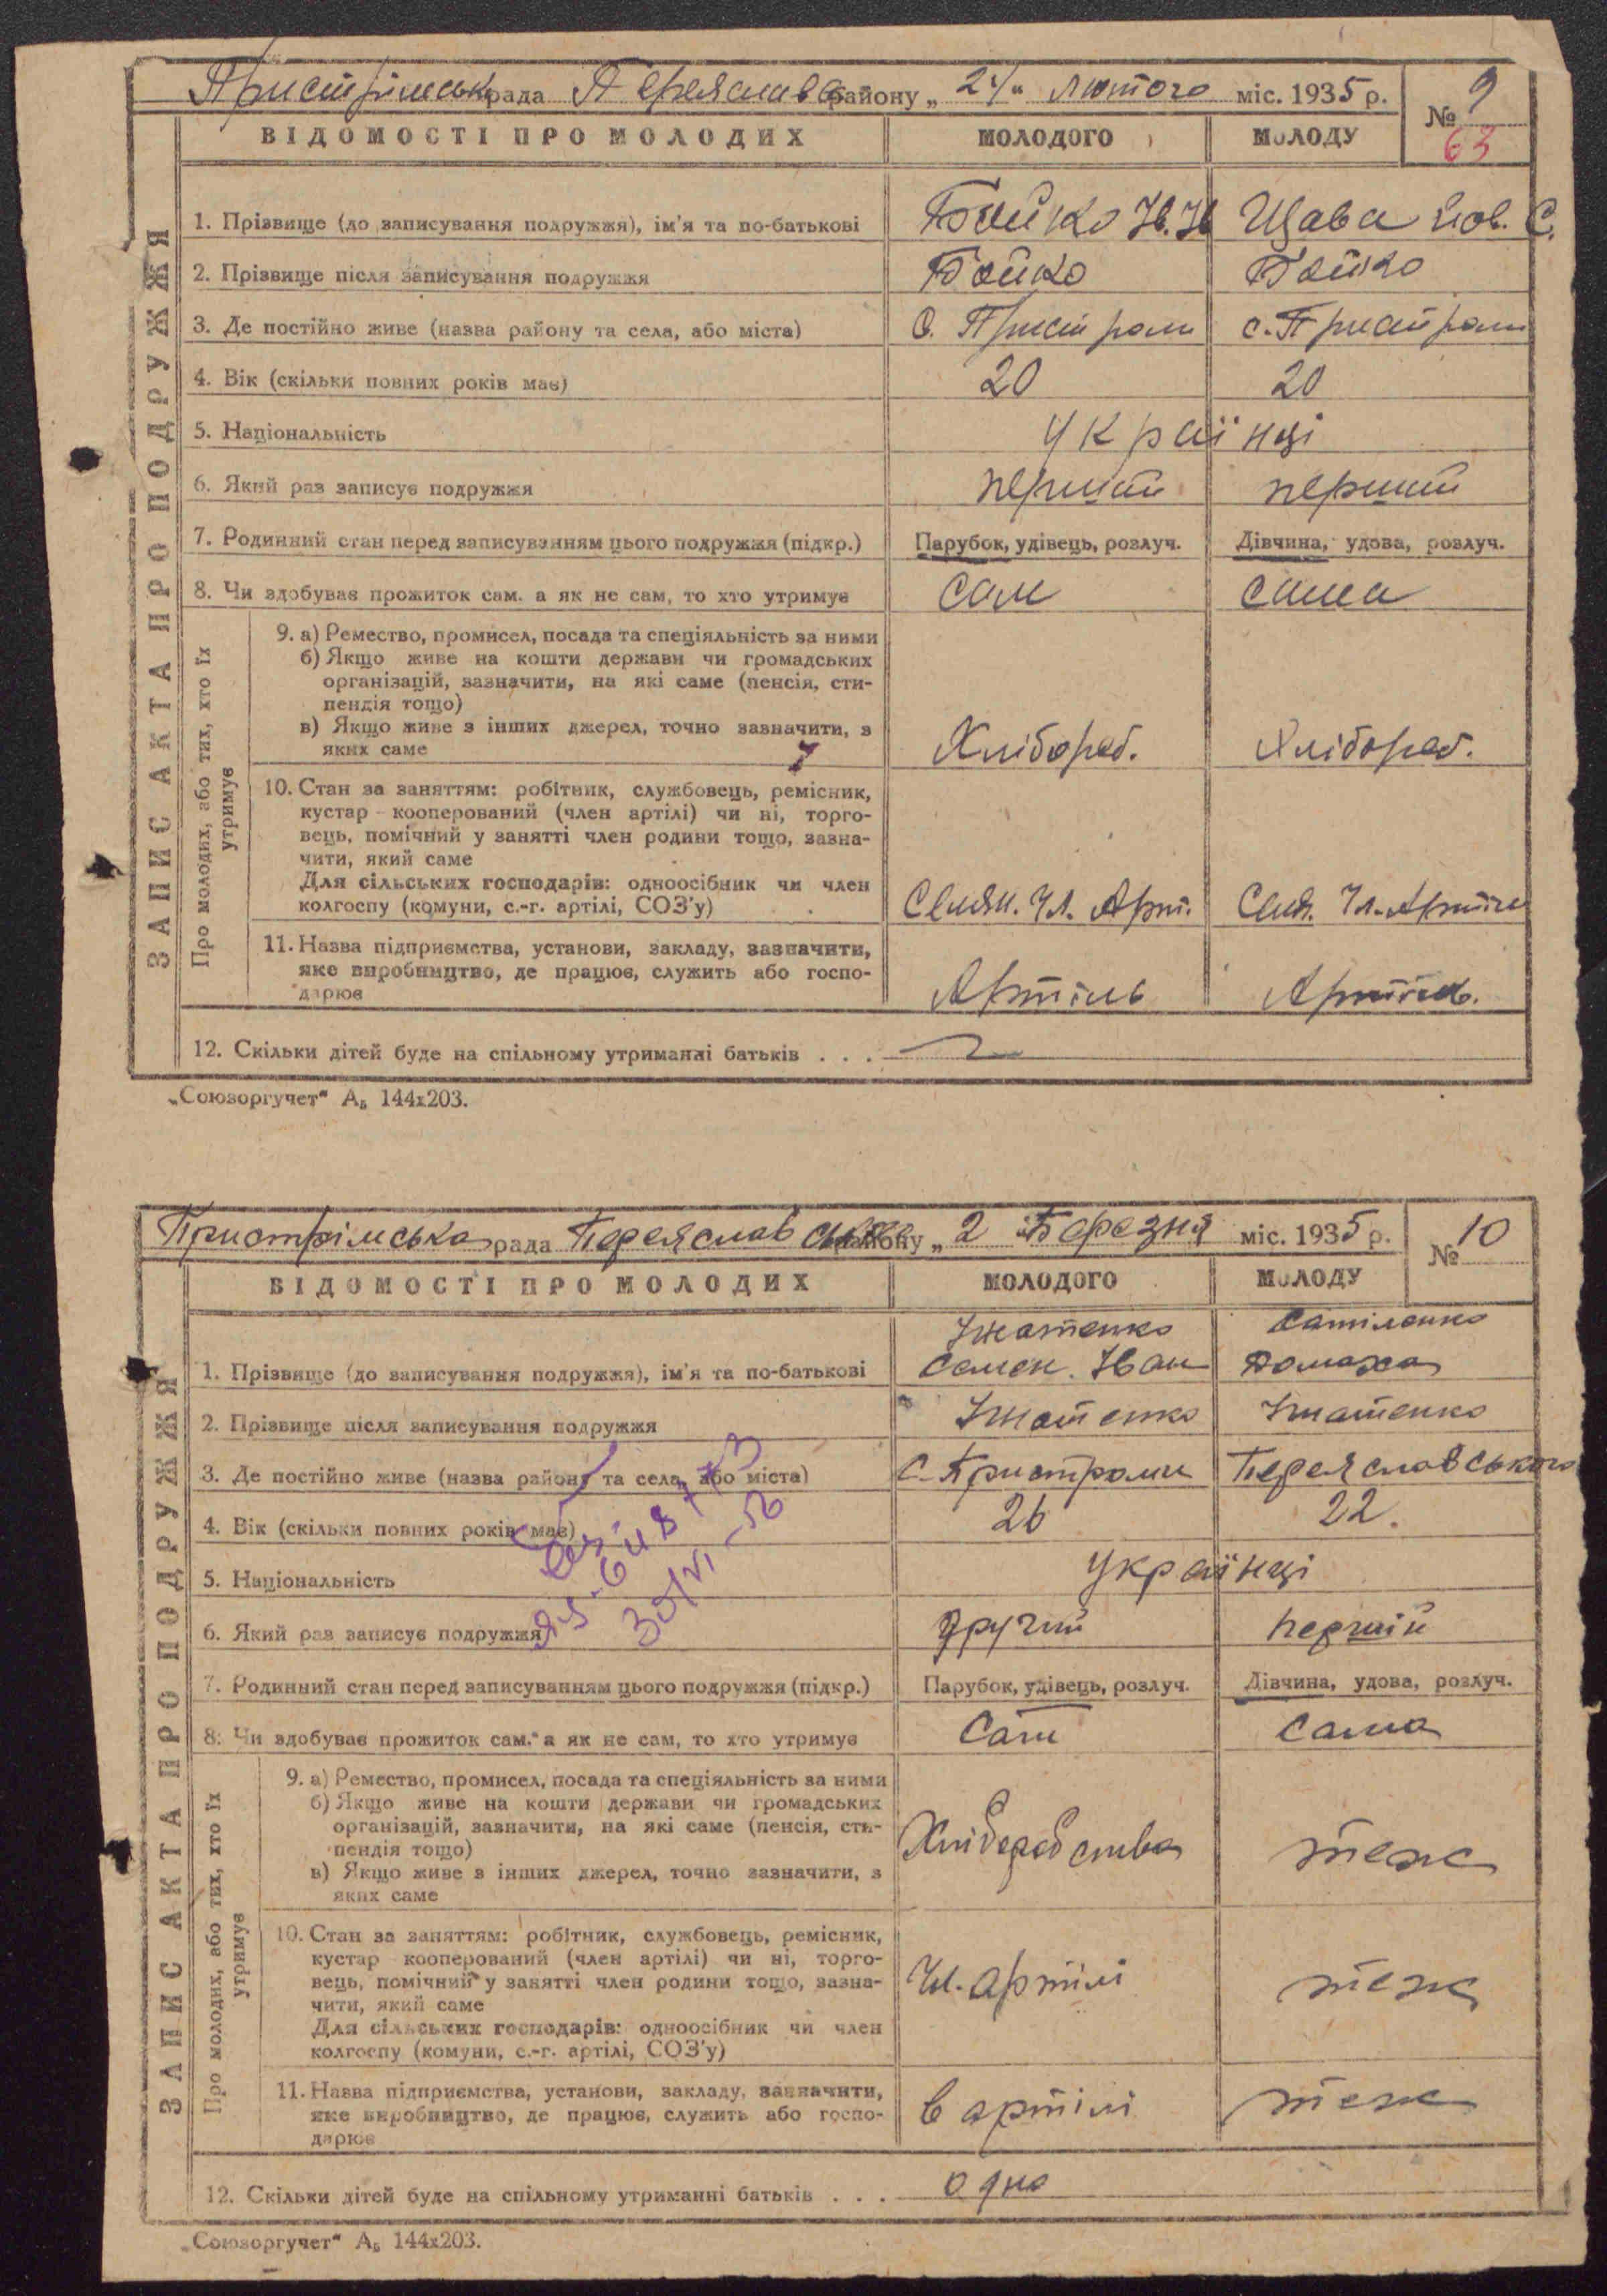 Пристрімськ рада Переяслав району „24" лютого міс. 1935 р.
№ 9
63
ВІДОМОСТІ ПРО МОЛОДИХ МОЛОДОГО МОЛОДУ
ЗАПИС АКТА ПРО ПОДРУЖЖЯ
1. Прізвище (до записування подружжя), ім'я та по-батькові Бойко Ів. Ів Щава С.
2. Прізвище після записування подружжя Бойко Бойко
3. Де постійно живе (назва району та села, або міста) с. Пристроми с. Пристроми
4. Вік (скільки повних років має) 20 20
5. Національність українці
6. Який раз записує подружжя перший перший
7. Родинний стан перед записуванням цього подружжя (підкр.) Парубок, удівець, розлуч. Дівчина, удова, розлуч.
8. Чи здобував прожиток сам, а як не сам, то хто утримує сам сама
Про молодих, або тих, хто їх утримує
9. а) Ремество, промисел, посада та спеціяльність за ними
б) Якщо живе на кошти держави чи громадських
організацій, зазначити, на які саме (пенсія, сти-
пендія тощо)
в) Якщо живе з інших джерел, точно зазначити, з
яких саме Хлібороб. Хлібороб.
10. Стан за заняттям: робітник, службовець, ремісник,
кустар - кооперований (член артілі) чи ні, торго-
вець, помічний у занятті член родини тощо, зазна-
чити, який саме
Для сільських господарів: одноосібник чи член
колгоспу (комуни, с.-г. артілі, СОЗ'у) Селян. Чл. Арт. Селя. Чл. Артіли
11. Назва підприємства, установи, закладу, зазначити,
яке виробництво, де працює, служить або госпо-
дарює Артіль Артіль.
12. Скільки дітей буде на спільному утриманні батьків . . .
„Союзоргучет" А₅ 144x203.
Пристрімська рада Переяславського району „ 2 Березня міс. 1935 р.
№ 10
ВІДОМОСТІ ПРО МОЛОДИХ МОЛОДОГО МОЛОДУ
ЗАПИС АКТА ПРО ПОДРУЖЖЯ
Ігнатенко
1. Прізвище (до записування подружжя), ім'я та по-батькові Семен. Іван Домаха
2. Прізвище після записування подружжя Ігнатенко Ігнатенко
3. Де постійно живе (назва району та села, або міста) с. Пристроми Переяславського
4. Вік (скільки повних років має) 26 22.
5. Національність українці
6. Який раз записує подружжя другий перший
7. Родинний стан перед записуванням цього подружжя (підкр.) Парубок, удівець, розлуч. Дівчина, удова, розлуч.
8. Чи здобував прожиток сам, а як не сам, то хто утримує Сам Сама
Про молодих, або тих, хто їх утримує
9. а) Ремество, промисел, посада та спеціяльність за ними
б) Якщо живе на кошти держави чи громадських
організацій, зазначити, на які саме (пенсія, сти-
пендія тощо)
в) Якщо живе з інших джерел, точно зазначити, з
яких саме Хліборобства теж
10. Стан за заняттям: робітник, службовець, ремісник,
кустар кооперований (член артілі) чи ні, торго-
вець, помічний у занятті член родини тощо, зазна-
чити, який саме
Для сільських господарів: одноосібник чи член
колгоспу (комуни, с.-г. артілі, СОЗ'у) Чл. артілі теж
11. Назва підприємства, установи, закладу, зазначити,
яке виробництво, де працює, служить або госпо-
дарює в артілі теж
12. Скільки дітей буде на спільному утриманні батьків . . . одно
„Союзоргучет" А₅ 144x203.